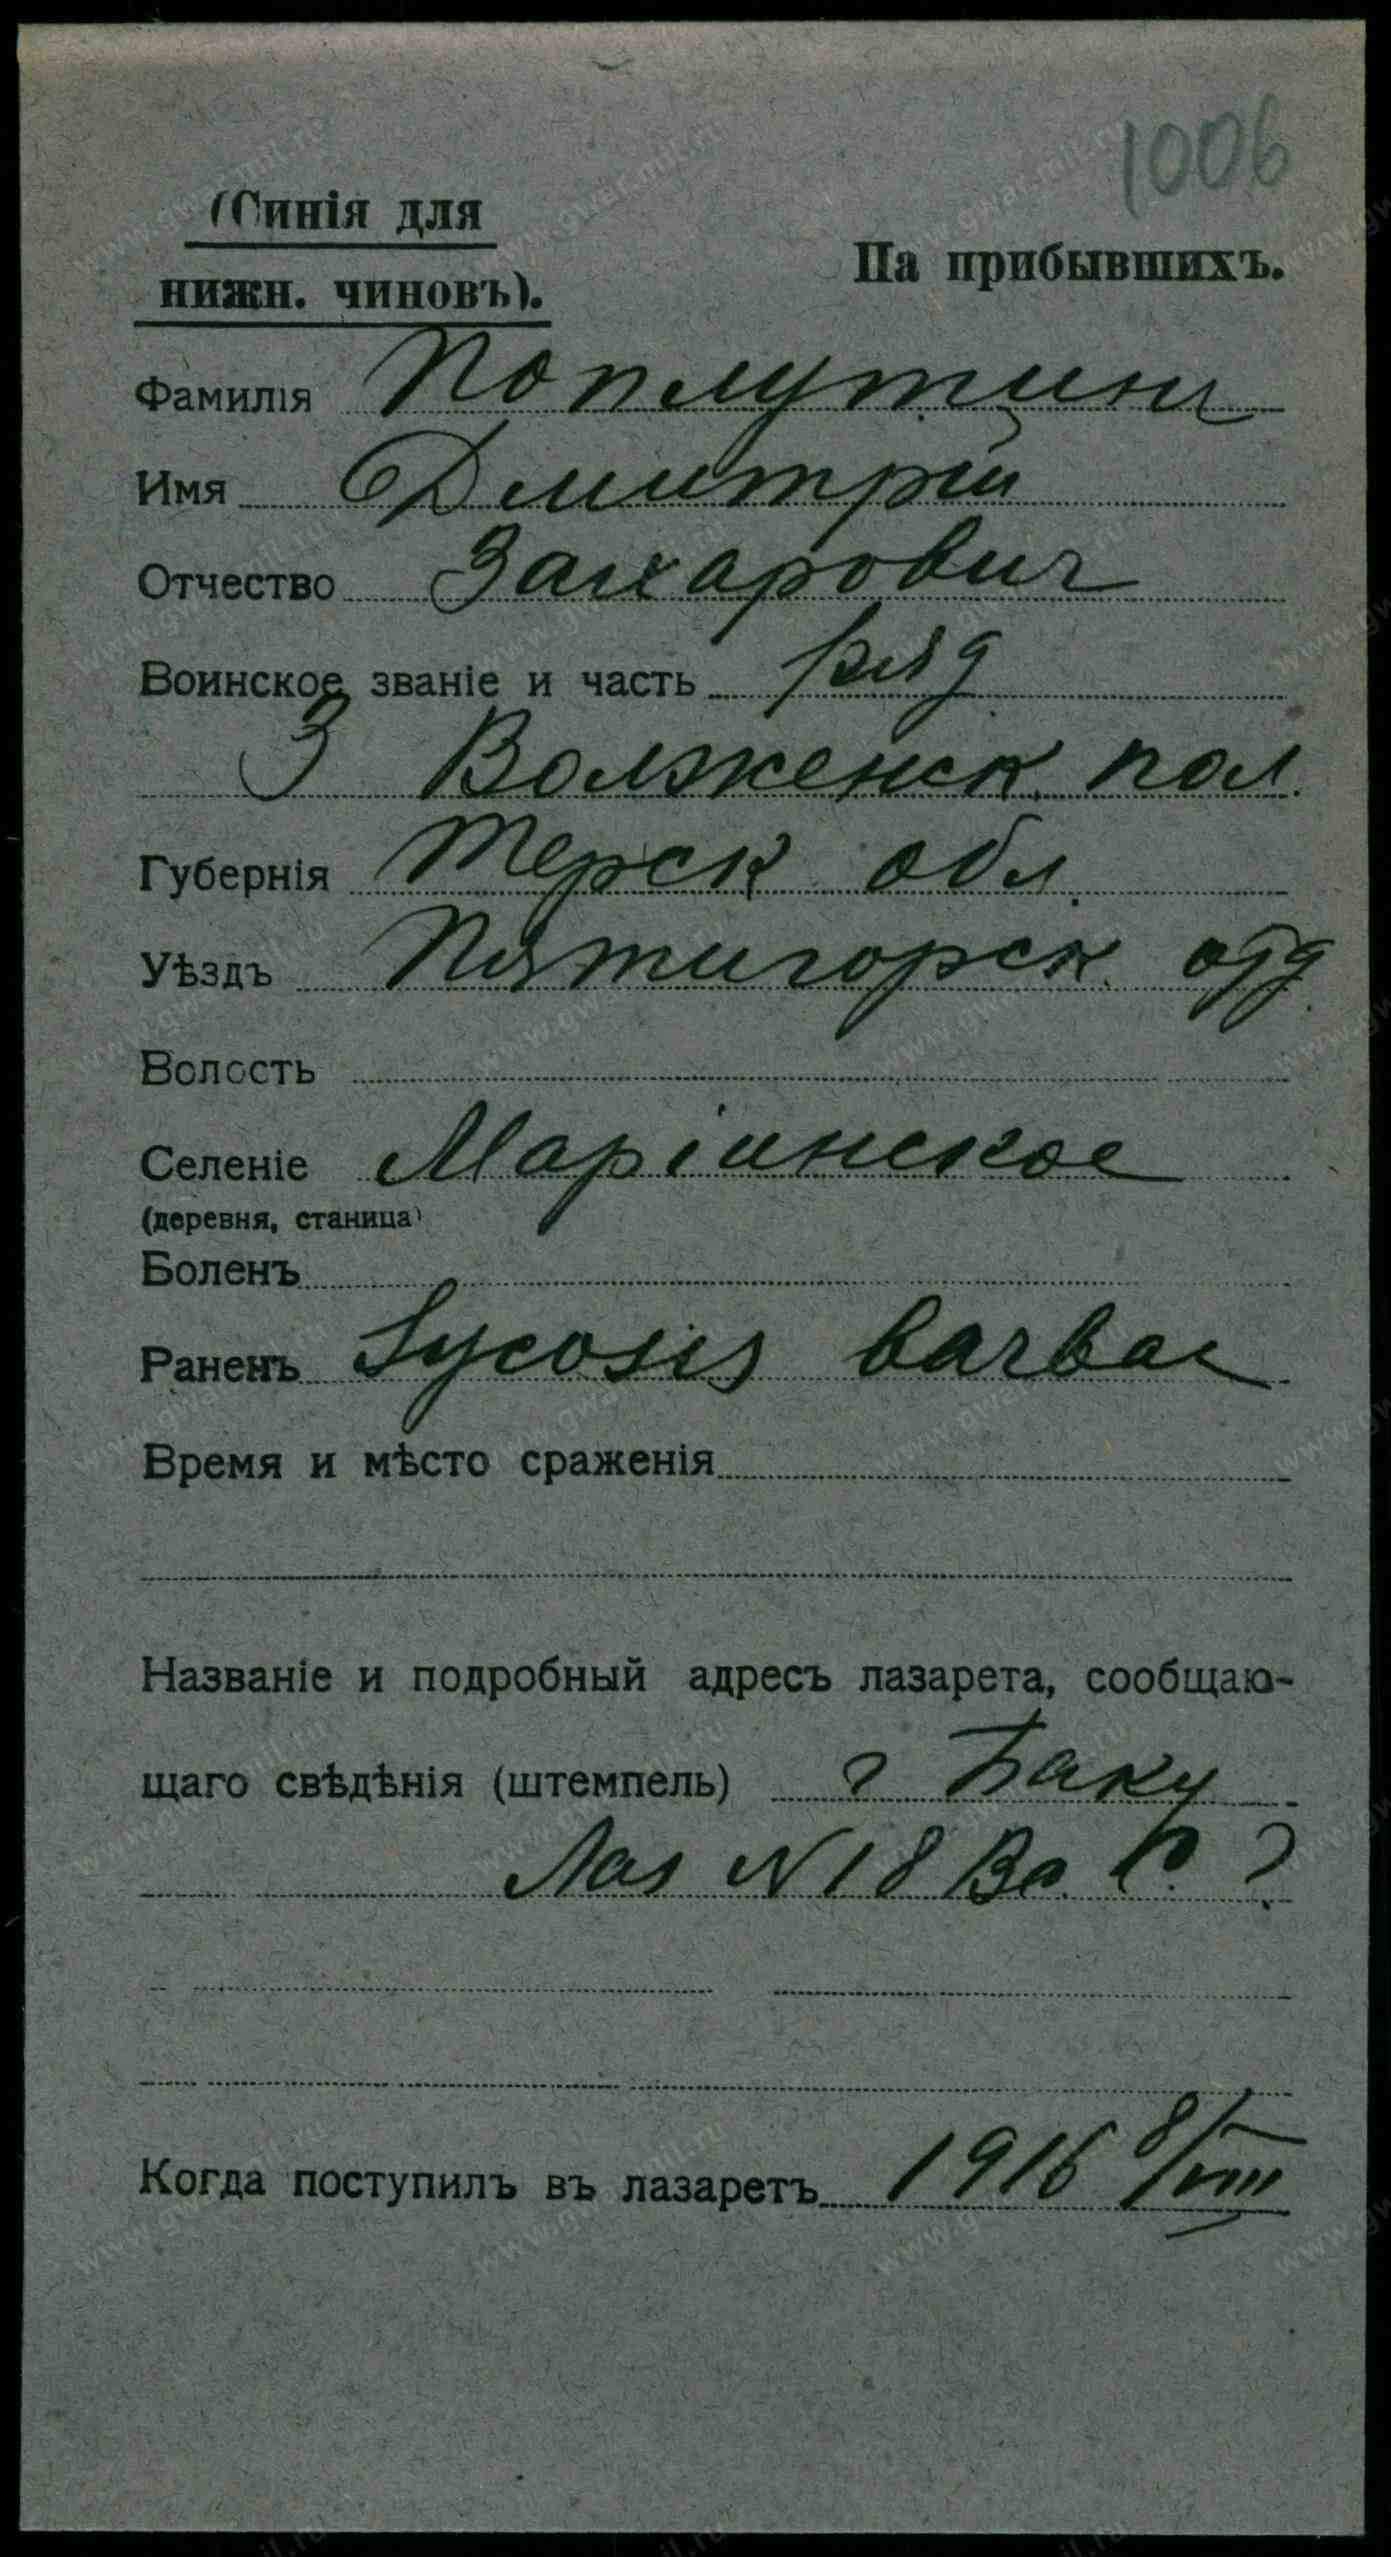 1006
(Синія для
нижн. чиновъ).
На прибывшихъ.
Фамилія Поплутин
Имя Дмитрій
Отчество Захарович
Воинское званіе и часть ряд
3 Волженск. пол.
Губернія Терск обл.
Уѣздъ Пятигорск. отд.
Волость
Селеніе Маріинское
(деревня, станица)
Боленъ
Раненъ Sycosis barbae
Время и мѣсто сраженія
Названіе и подробный адресъ лазарета, сообщаю-
щаго свѣдѣнія (штемпель) г Баку
Лаз N 18 Вс. С. Г.
Когда поступилъ въ лазаретъ 1916 8/VIII